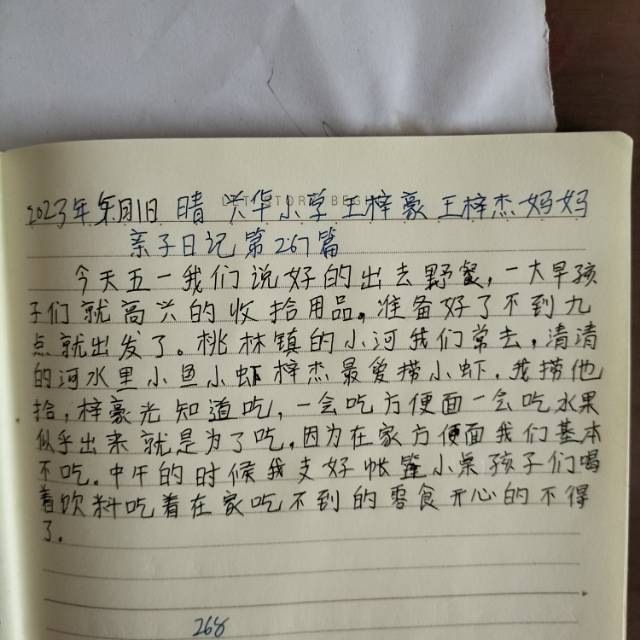 2023年5月1日 晴 兴华小学王梓豪王梓杰妈妈
亲子日记第267篇
今天五一我们说好的出去野餐,一大早孩
子们就高兴的收拾用品。准备好了不到九
点就出发了。桃林镇的小河我们常去,清清
的河水里小鱼小虾梓杰最爱捞小虾,我捞他
拾,梓豪光知道吃,一会吃方便面一会吃水果
似乎出来就是为了吃,因为在家方便面我们基本
不吃。中午的时候我支好帐篷小桌孩子们喝
着饮料吃着在家吃不到的零食开心的不得
了.
268